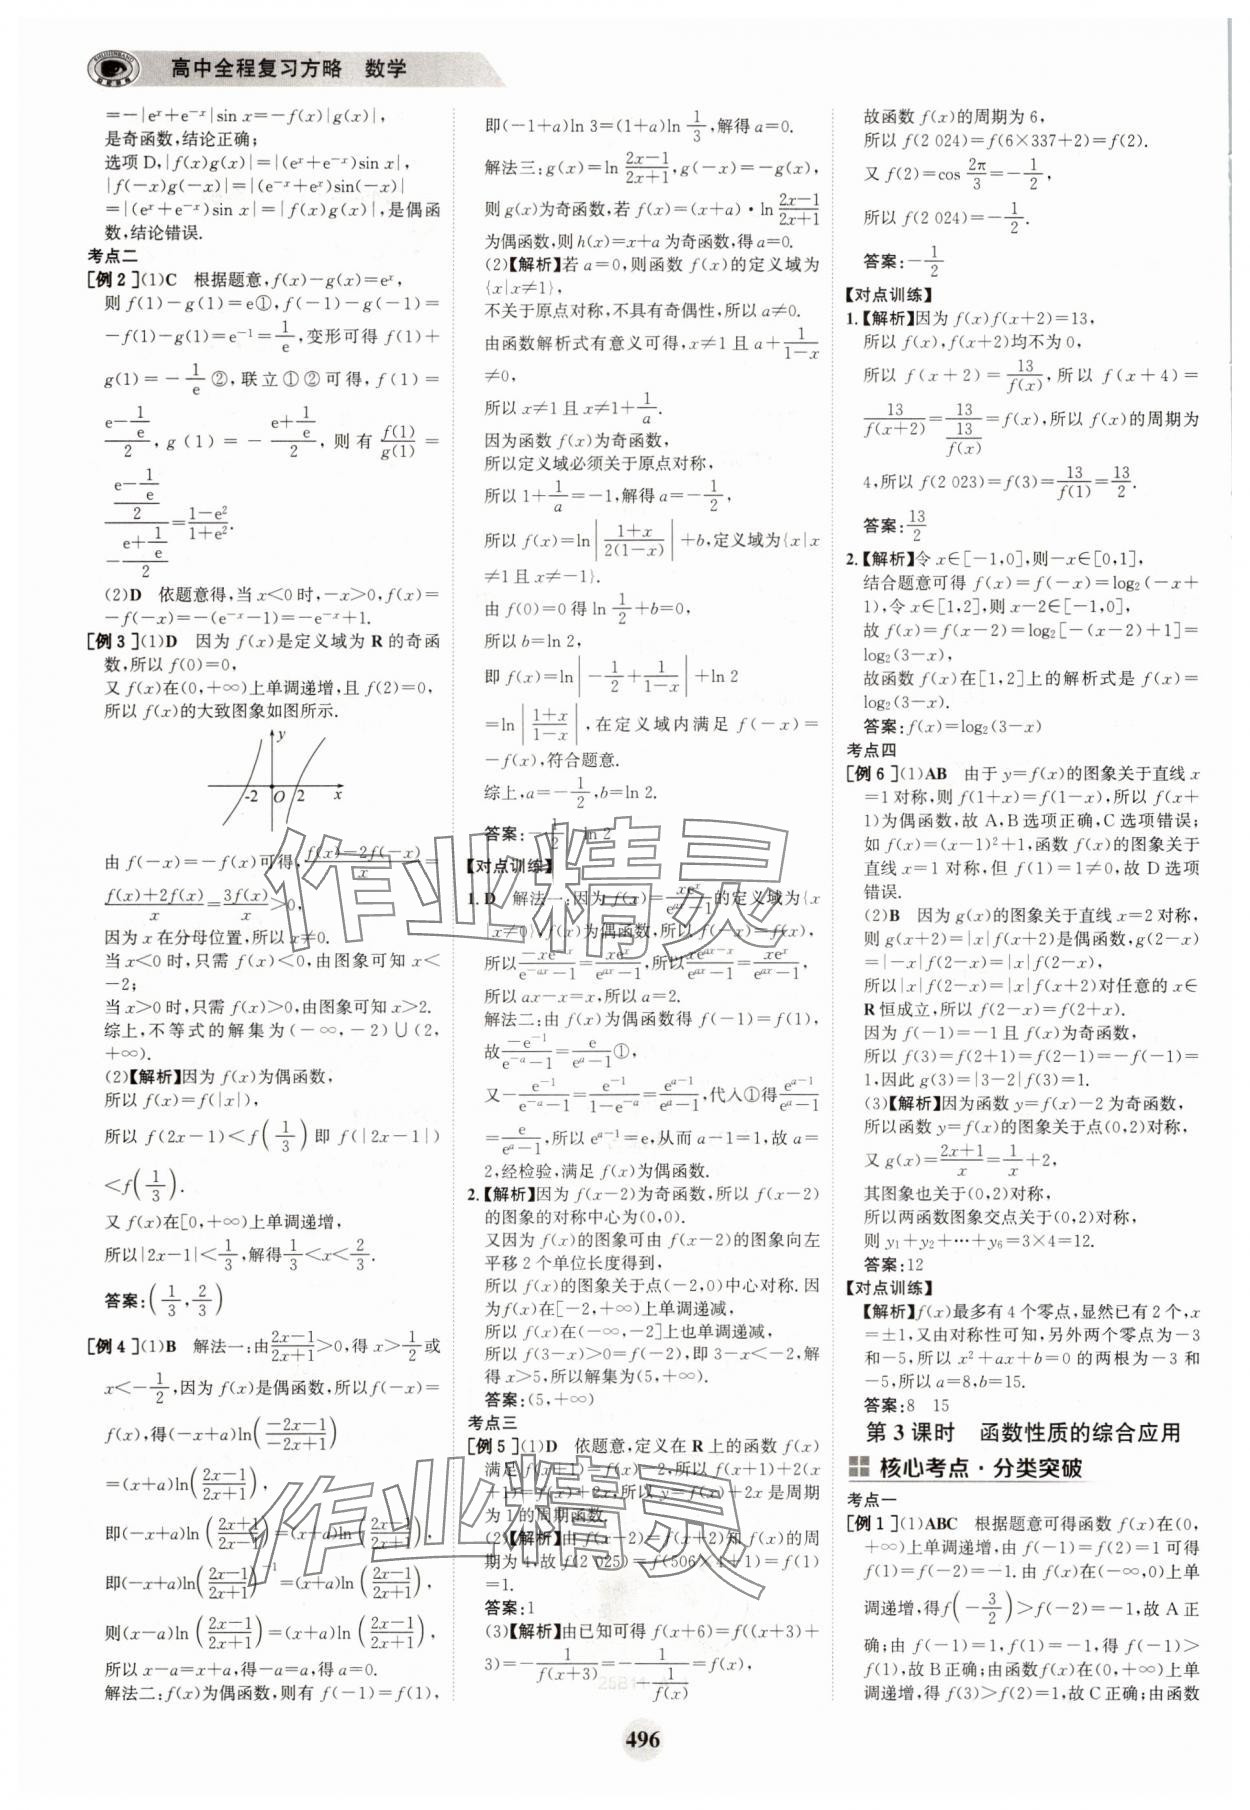 高中全程复习方略 数学
=-|eˣ+e⁻ˣ|sin x=-f(x)|g(x)|,
是奇函数,结论正确;
选项D,|f(x)g(x)|=|(eˣ+e⁻ˣ)sin x|,
|f(-x)g(-x)|=|(e⁻ˣ+eˣ)sin(-x)|
=|(eˣ+e⁻ˣ)sin x|=|f(x)g(x)|,是偶函
数,结论错误.
考点二
[例2](1)C 根据题意,f(x)-g(x)=eˣ,
则f(1)-g(1)=e①,f(-1)-g(-1)=
-f(1)-g(1)=e⁻¹=1/e,变形可得f(1)+
g(1)=-1/e②,联立①②可得,f(1)=
(e-1/e)/2,g(1)=-(e+1/e)/2,则有f(1)/g(1)=
((e-1/e)/2)/(-(e+1/e)/2)=(1-e²)/(1+e²).
(2)D 依题意得,当x<0时,-x>0,f(x)=
-f(-x)=-(e⁻ˣ-1)=-e⁻ˣ+1.
[例3](1)D 因为f(x)是定义域为R的奇函
数,所以f(0)=0,
又f(x)在(0,+∞)上单调递增,且f(2)=0,
所以f(x)的大致图象如图所示.
y
-2 O 2 x
由f(-x)=-f(x)可得,(f(x)-2f(-x))/x=
(f(x)+2f(x))/x=3f(x)/x>0,
因为x在分母位置,所以x≠0.
当x<0时,只需f(x)<0,由图象可知x<
-2;
当x>0时,只需f(x)>0,由图象可知x>2.
综上,不等式的解集为(-∞,-2)∪(2,
+∞).
(2)【解析】因为f(x)为偶函数,
所以f(x)=f(|x|),
所以f(2x-1)<f(1/3)即f(|2x-1|)
<f(1/3).
又f(x)在[0,+∞)上单调递增,
所以|2x-1|<1/3,解得1/3<x<2/3.
答案:(1/3,2/3)
[例4](1)B 解法一:由(2x-1)/(2x+1)>0,得x>1/2或
x<-1/2,因为f(x)是偶函数,所以f(-x)=
f(x),得(-x+a)ln((-2x-1)/(-2x+1))
=(x+a)ln((2x-1)/(2x+1)),
即(-x+a)ln((2x+1)/(2x-1))=(x+a)ln((2x-1)/(2x+1)),
即(-x+a)ln((2x-1)/(2x+1))⁻¹=(x+a)ln((2x-1)/(2x+1)),
则(x-a)ln((2x-1)/(2x+1))=(x+a)ln((2x-1)/(2x+1)),
所以x-a=x+a,得-a=a,得a=0.
解法二:f(x)是偶函数,则有f(-1)=f(1),
即(-1+a)ln 3=(1+a)ln 1/3,解得a=0.
解法三:g(x)=ln (2x-1)/(2x+1),g(-x)=-g(x),
则g(x)为奇函数,若f(x)=(x+a)·ln (2x-1)/(2x+1)
为偶函数,则h(x)=x+a为奇函数,得a=0.
(2)【解析】若a=0,则函数f(x)的定义域为
{x|x≠1},
不关于原点对称,不具有奇偶性,所以a≠0.
由函数解析式有意义可得,x≠1且a+1/(1-x)
≠0,
所以x≠1且x≠1+1/a.
因为函数f(x)为奇函数,
所以定义域必须关于原点对称,
所以1+1/a=-1,解得a=-1/2,
所以f(x)=ln|(1+x)/(2(1-x))|+b,定义域为{x|x
≠1且x≠-1}.
由f(0)=0得ln 1/2+b=0,
所以b=ln 2,
即f(x)=ln|-1/2+1/(1-x)|+ln 2
=ln|(1+x)/(1-x)|,在定义域内满足f(-x)=
-f(x),符合题意.
综上,a=-1/2,b=ln 2.
答案:-1/2 ln 2
【对点训练】
1.D 解法一:因为f(x)=xeˣ/(eᵃˣ-1)的定义域为{x
|x≠0},f(x)为偶函数,所以f(-x)=f(x),
所以-xe⁻ˣ/(e⁻ᵃˣ-1)=xeˣ/(eᵃˣ-1),所以xeᵃˣ⁻ˣ/(eᵃˣ-1)=xeˣ/(eᵃˣ-1),
所以ax-x=x,所以a=2.
解法二:由f(x)为偶函数得f(-1)=f(1),
故-e⁻¹/(e⁻ᵃ-1)=e/(eᵃ-1)①,
又-e⁻¹/(e⁻ᵃ-1)=e⁻¹/(1-e⁻ᵃ)=eᵃ⁻¹/(eᵃ-1),代入①得eᵃ⁻¹/(eᵃ-1)
=e/(eᵃ-1),所以eᵃ⁻¹=e,从而a-1=1,故a=
2,经检验,满足f(x)为偶函数.
2.【解析】因为f(x-2)为奇函数,所以f(x-2)
的图象的对称中心为(0,0).
又因为f(x)的图象可由f(x-2)的图象向左
平移2个单位长度得到,
所以f(x)的图象关于点(-2,0)中心对称.因
为f(x)在[-2,+∞)上单调递减,
所以f(x)在(-∞,-2]上也单调递减,
所以f(3-x)>0=f(-2),即3-x<-2,解
得x>5,所以解集为(5,+∞).
答案:(5,+∞)
考点三
[例5](1)D 依题意,定义在R上的函数f(x)
满足f(x+1)=f(x),所以f(x+1)+2(x
+1)=f(x)+2x,所以y=f(x)+2x是周期
为1的周期函数.
(2)【解析】由f(x-2)=f(x+2)知f(x)的周
期为4,故f(2 025)=f(506×4+1)=f(1)
=1.
答案:1
(3)【解析】由已知可得f(x+6)=f((x+3)+
3)=-1/f(x+3)=-1/(-1/f(x))=f(x),
故函数f(x)的周期为6,
所以f(2 024)=f(6×337+2)=f(2).
又f(2)=cos 2π/3=-1/2,
所以f(2 024)=-1/2.
答案:-1/2
【对点训练】
1.【解析】因为f(x)f(x+2)=13,
所以f(x),f(x+2)均不为0,
所以f(x+2)=13/f(x),所以f(x+4)=
13/f(x+2)=13/(13/f(x))=f(x),所以f(x)的周期为
4,所以f(2 023)=f(3)=13/f(1)=13/2.
答案:13/2
2.【解析】令x∈[-1,0],则-x∈[0,1],
结合题意可得f(x)=f(-x)=log₂(-x+
1),令x∈[1,2],则x-2∈[-1,0],
故f(x)=f(x-2)=log₂[-(x-2)+1]=
log₂(3-x),
故函数f(x)在[1,2]上的解析式是f(x)=
log₂(3-x).
答案:f(x)=log₂(3-x)
考点四
[例6](1)AB 由于y=f(x)的图象关于直线x
=1对称,则f(1+x)=f(1-x),所以f(x+
1)为偶函数,故A、B选项正确,C选项错误;
如f(x)=(x-1)²+1,函数f(x)的图象关于
直线x=1对称,但f(1)=1≠0,故D选项
错误.
(2)B 因为g(x)的图象关于直线x=2对称,
则g(x+2)=|x|f(x+2)是偶函数,g(2-x)
=|-x|f(2-x)=|x|f(2-x),
所以|x|f(2-x)=|x|f(x+2)对任意的x∈
R恒成立,所以f(2-x)=f(2+x).
因为f(-1)=-1且f(x)为奇函数,
所以f(3)=f(2+1)=f(2-1)=-f(-1)=
1,因此g(3)=|3-2|f(3)=1.
(3)【解析】因为函数y=f(x)-2为奇函数,
所以函数y=f(x)的图象关于点(0,2)对称,
又g(x)=(2x+1)/x=1/x+2,
其图象也关于(0,2)对称,
所以两函数图象交点关于(0,2)对称,
则y₁+y₂+…+y₆=3×4=12.
答案:12
【对点训练】
【解析】f(x)最多有4个零点,显然已有2个,x
=±1,又由对称性可知,另外两个零点为-3
和-5,所以x²+ax+b=0的两根为-3和
-5,所以a=8,b=15.
答案:8 15
第3课时 函数性质的综合应用
核心考点·分类突破
考点一
[例1](1)ABC 根据题意可得函数f(x)在(0,
+∞)上单调递增,由f(-1)=f(2)=1可得
f(1)=f(-2)=-1.由f(x)在(-∞,0)上单
调递增,得f(-3/2)>f(-2)=-1,故A正
确;由f(-1)=1,f(1)=-1,得f(-1)>
f(1),故B正确;由函数f(x)在(0,+∞)上单
调递增,得f(3)>f(2)=1,故C正确;由函数
作业精灵
作业精灵
496